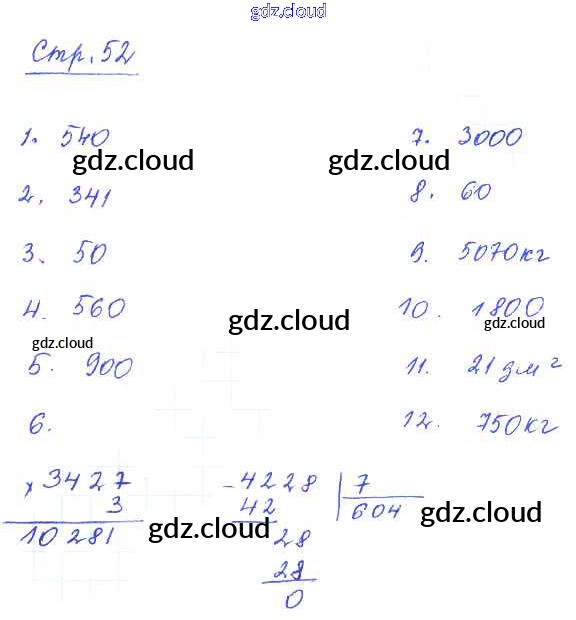 gdz.cloud
Стр. 52
1. 540
2. 341
3. 50
4. 560
5. 900
6.
× 3427
3
10281
- 4228 | 7
42 604
28
28
0
7. 3000
8. 60
9. 5070кг
10. 1800
11. 21 дм²
12. 750кг
gdz.cloud
gdz.cloud
gdz.cloud
gdz.cloud
gdz.cloud
gdz.cloud
gdz.cloud